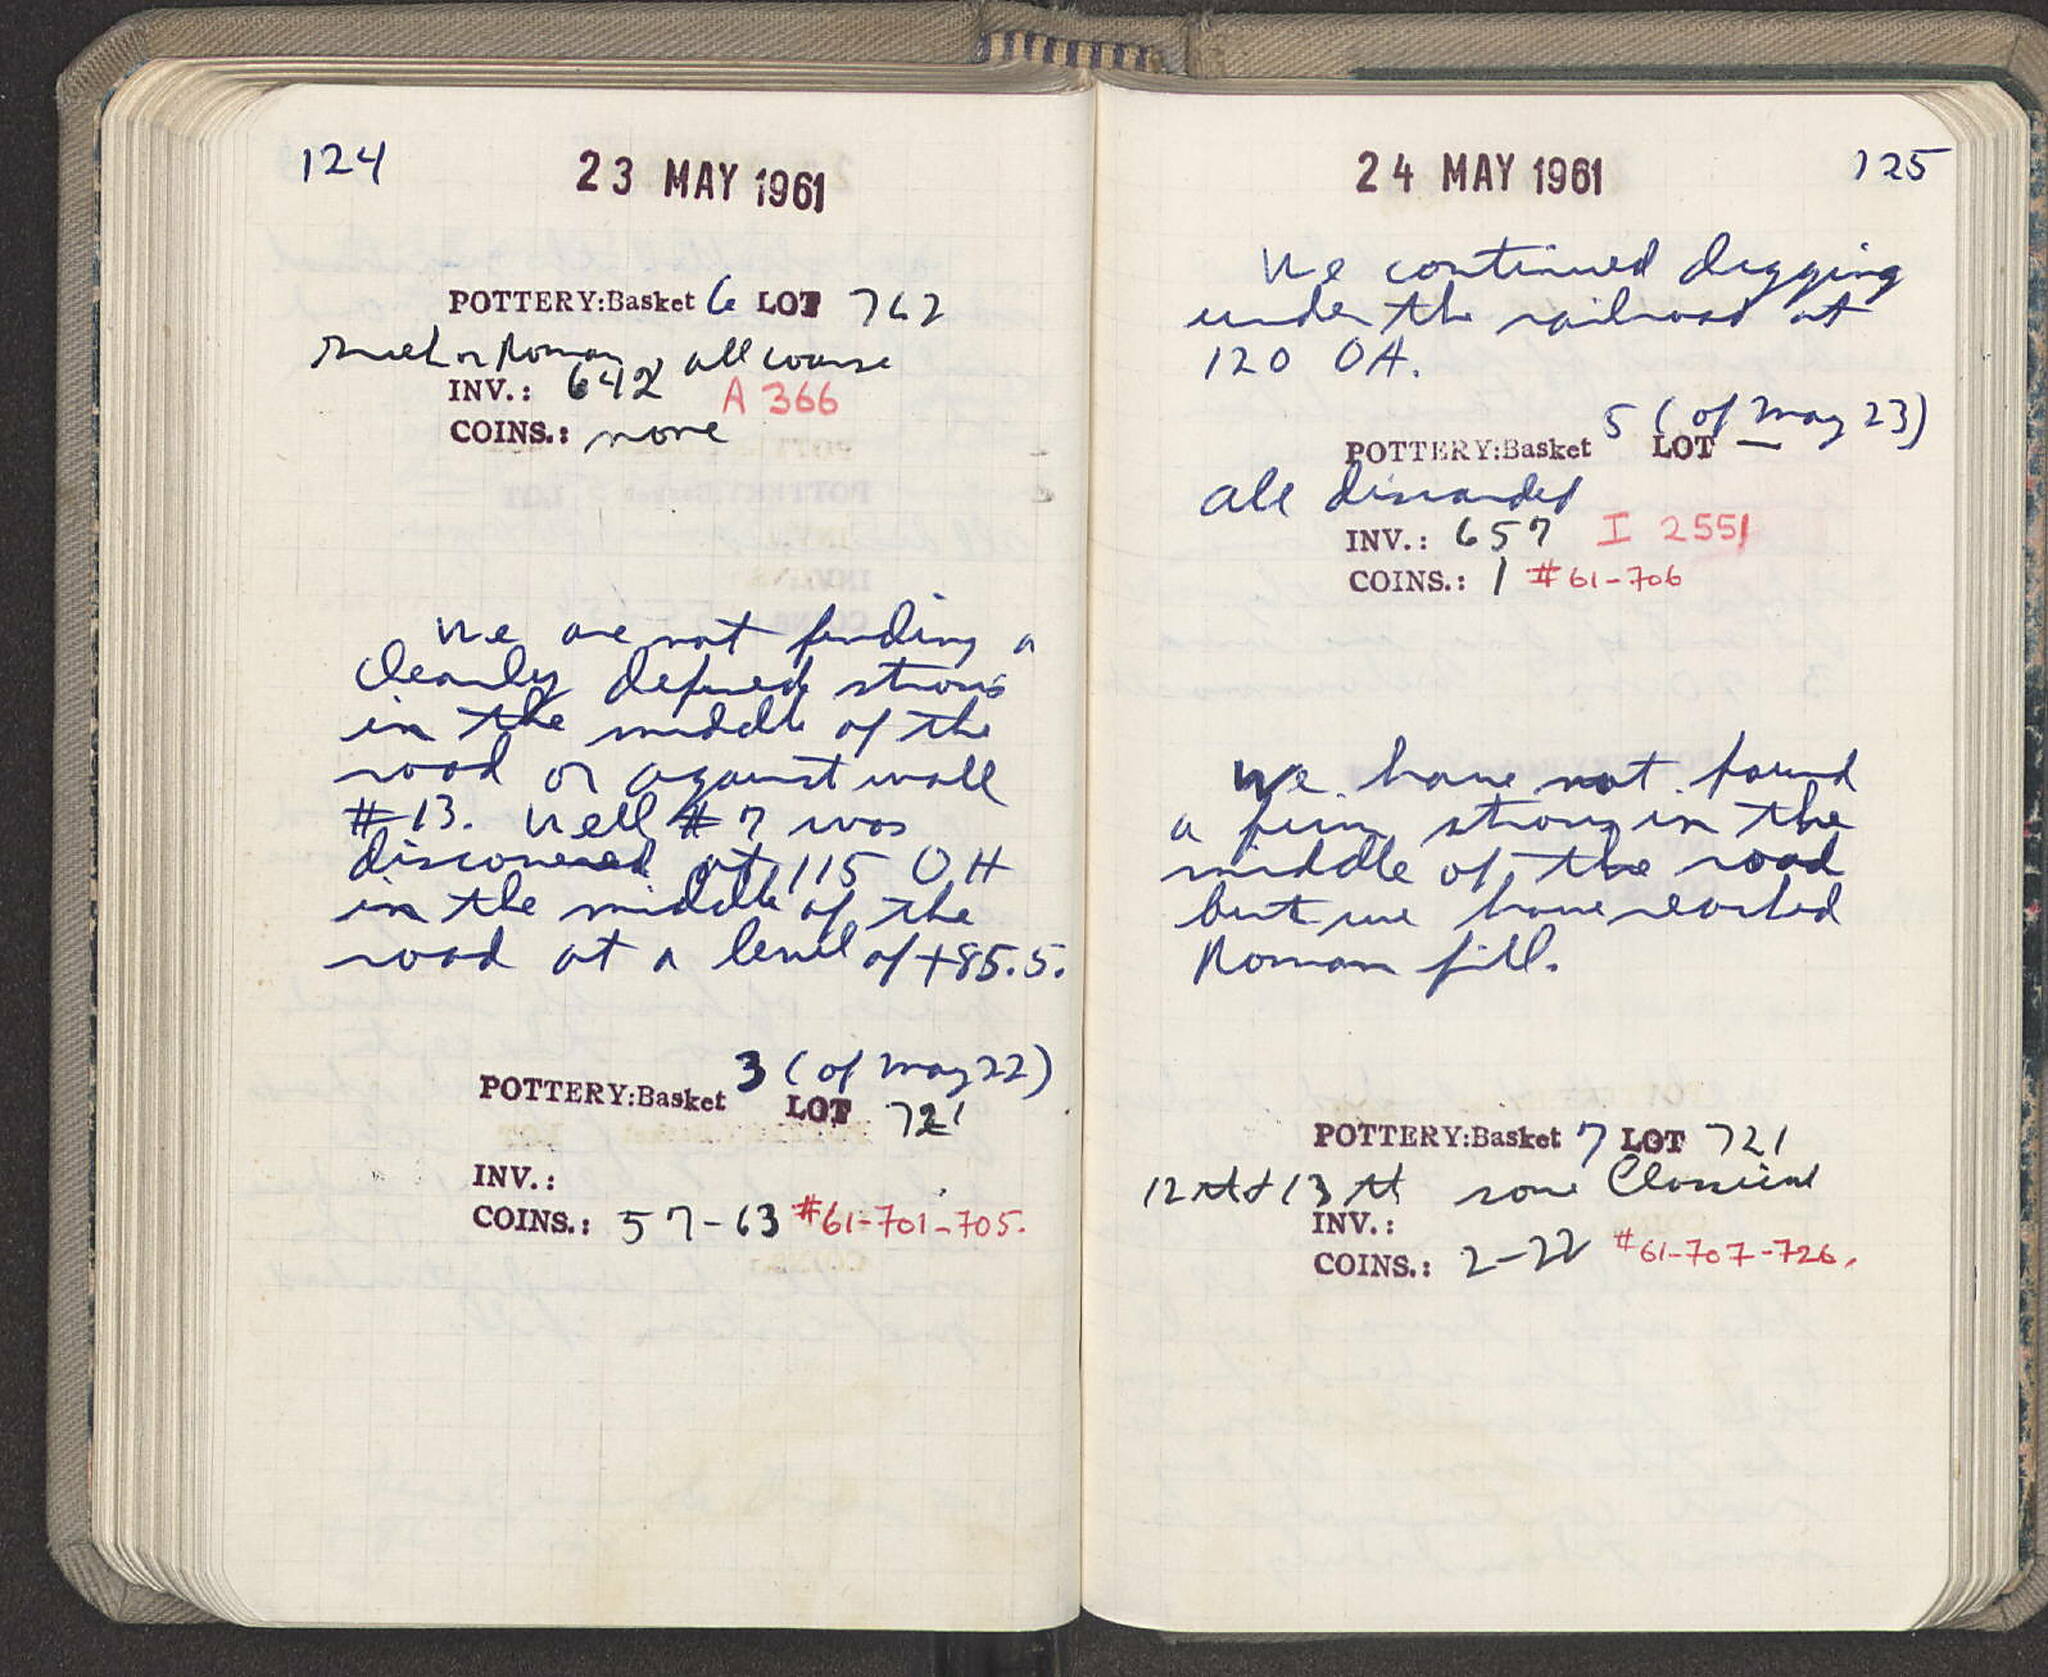 124
23 MAY 1961
POTTERY:Basket 6 LOT 762
or Roman, all coarse
INV.: 642 A 366
COINS.: none
We are not finding a
clearly defined strosis
in the middle of the
road or against wall
#13. Well #7 was
discovered at 115 OH
in the middle of the
road at a level of +85.5.
3 (of May 22)
POTTERY:Basket LOT 721
INV.:
COINS.: 57-63 #61-701-705.
24 MAY 1961
125
We continued digging
under the railroad at
120 OA.
5 (of May 23)
POTTERY:Basket LOT —
all discarded
INV.: 657 I 2551
COINS.: 1 #61-706
We have not found
a firm strosis in the
middle of the road
but we have reached
Roman fill.
POTTERY:Basket 7 LOT 721
12th + 13th some Classical
INV.:
COINS.: 2-22 #61-707-726.